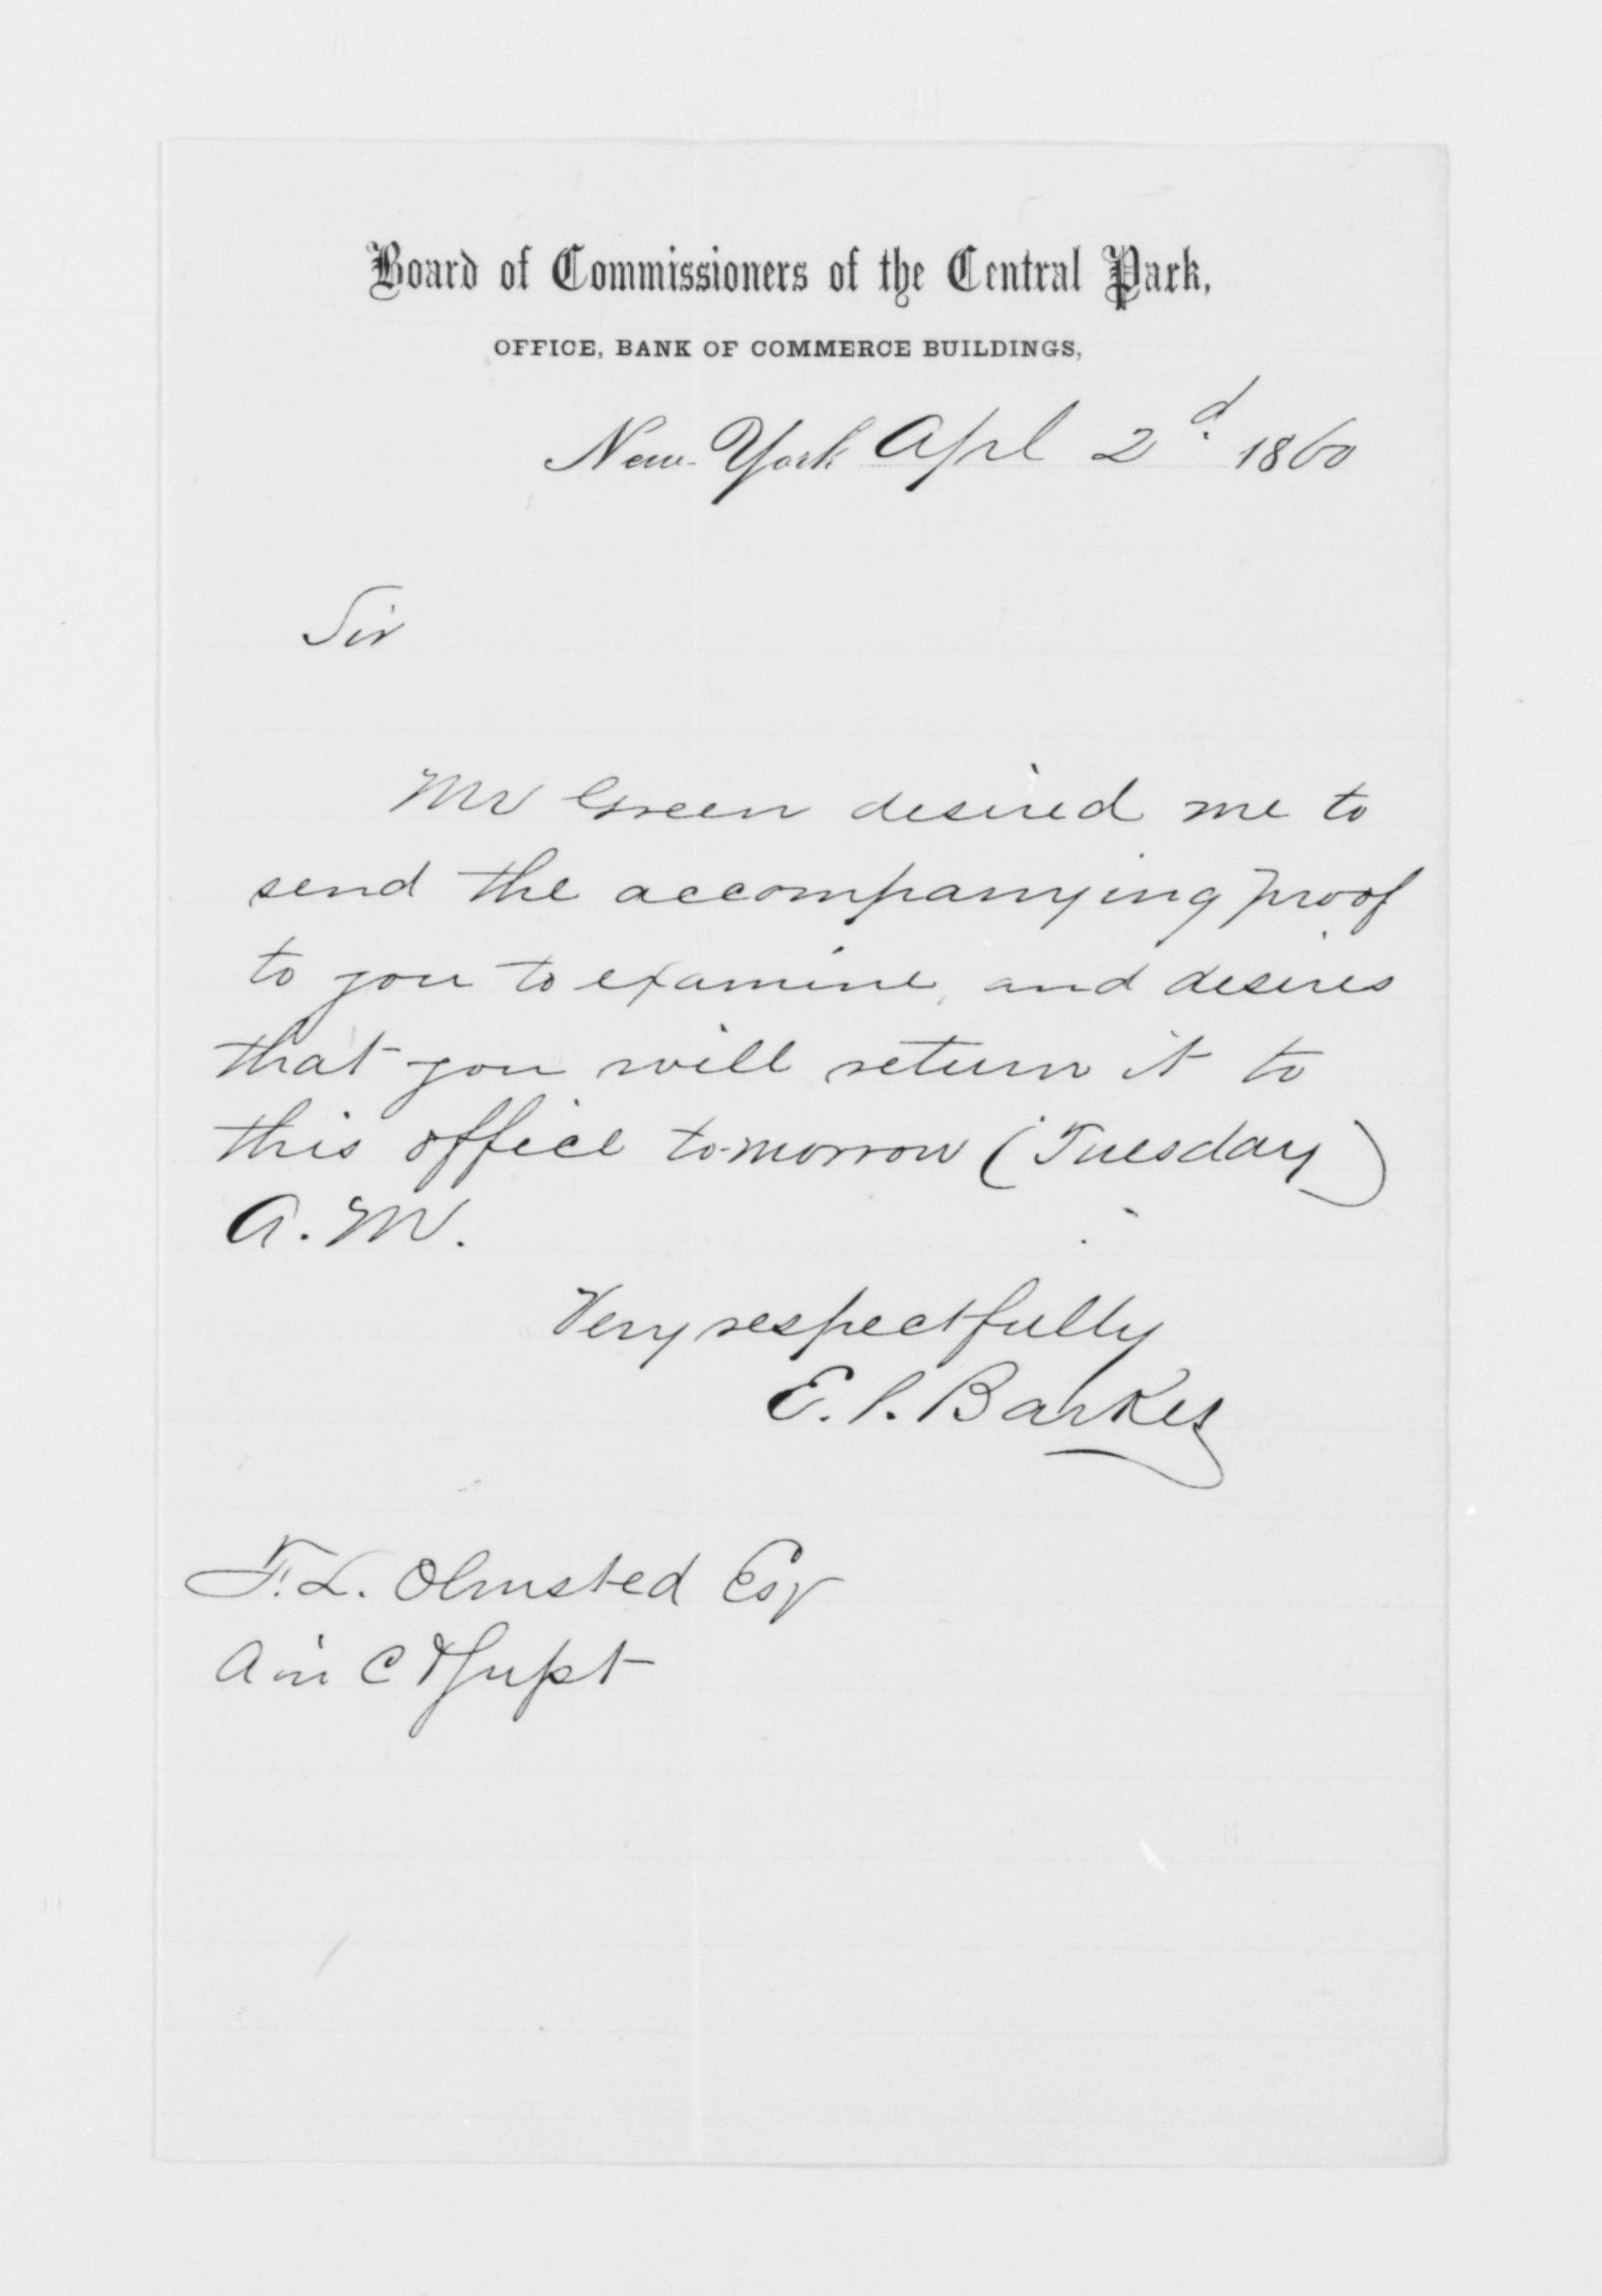 Board of Commissioners of the Central Park,
OFFICE, BANK OF COMMERCE BUILDINGS,
New-York Apl 2d 1860
Sir
Mr Green desired me to
send the accompanying proof
to you to examine, and desires
that you will return it to
this office to-morrow (Tuesday)
A.M.
Very respectfully
E. P. Barker
F. L. Olmsted Esq
A in C & Supt